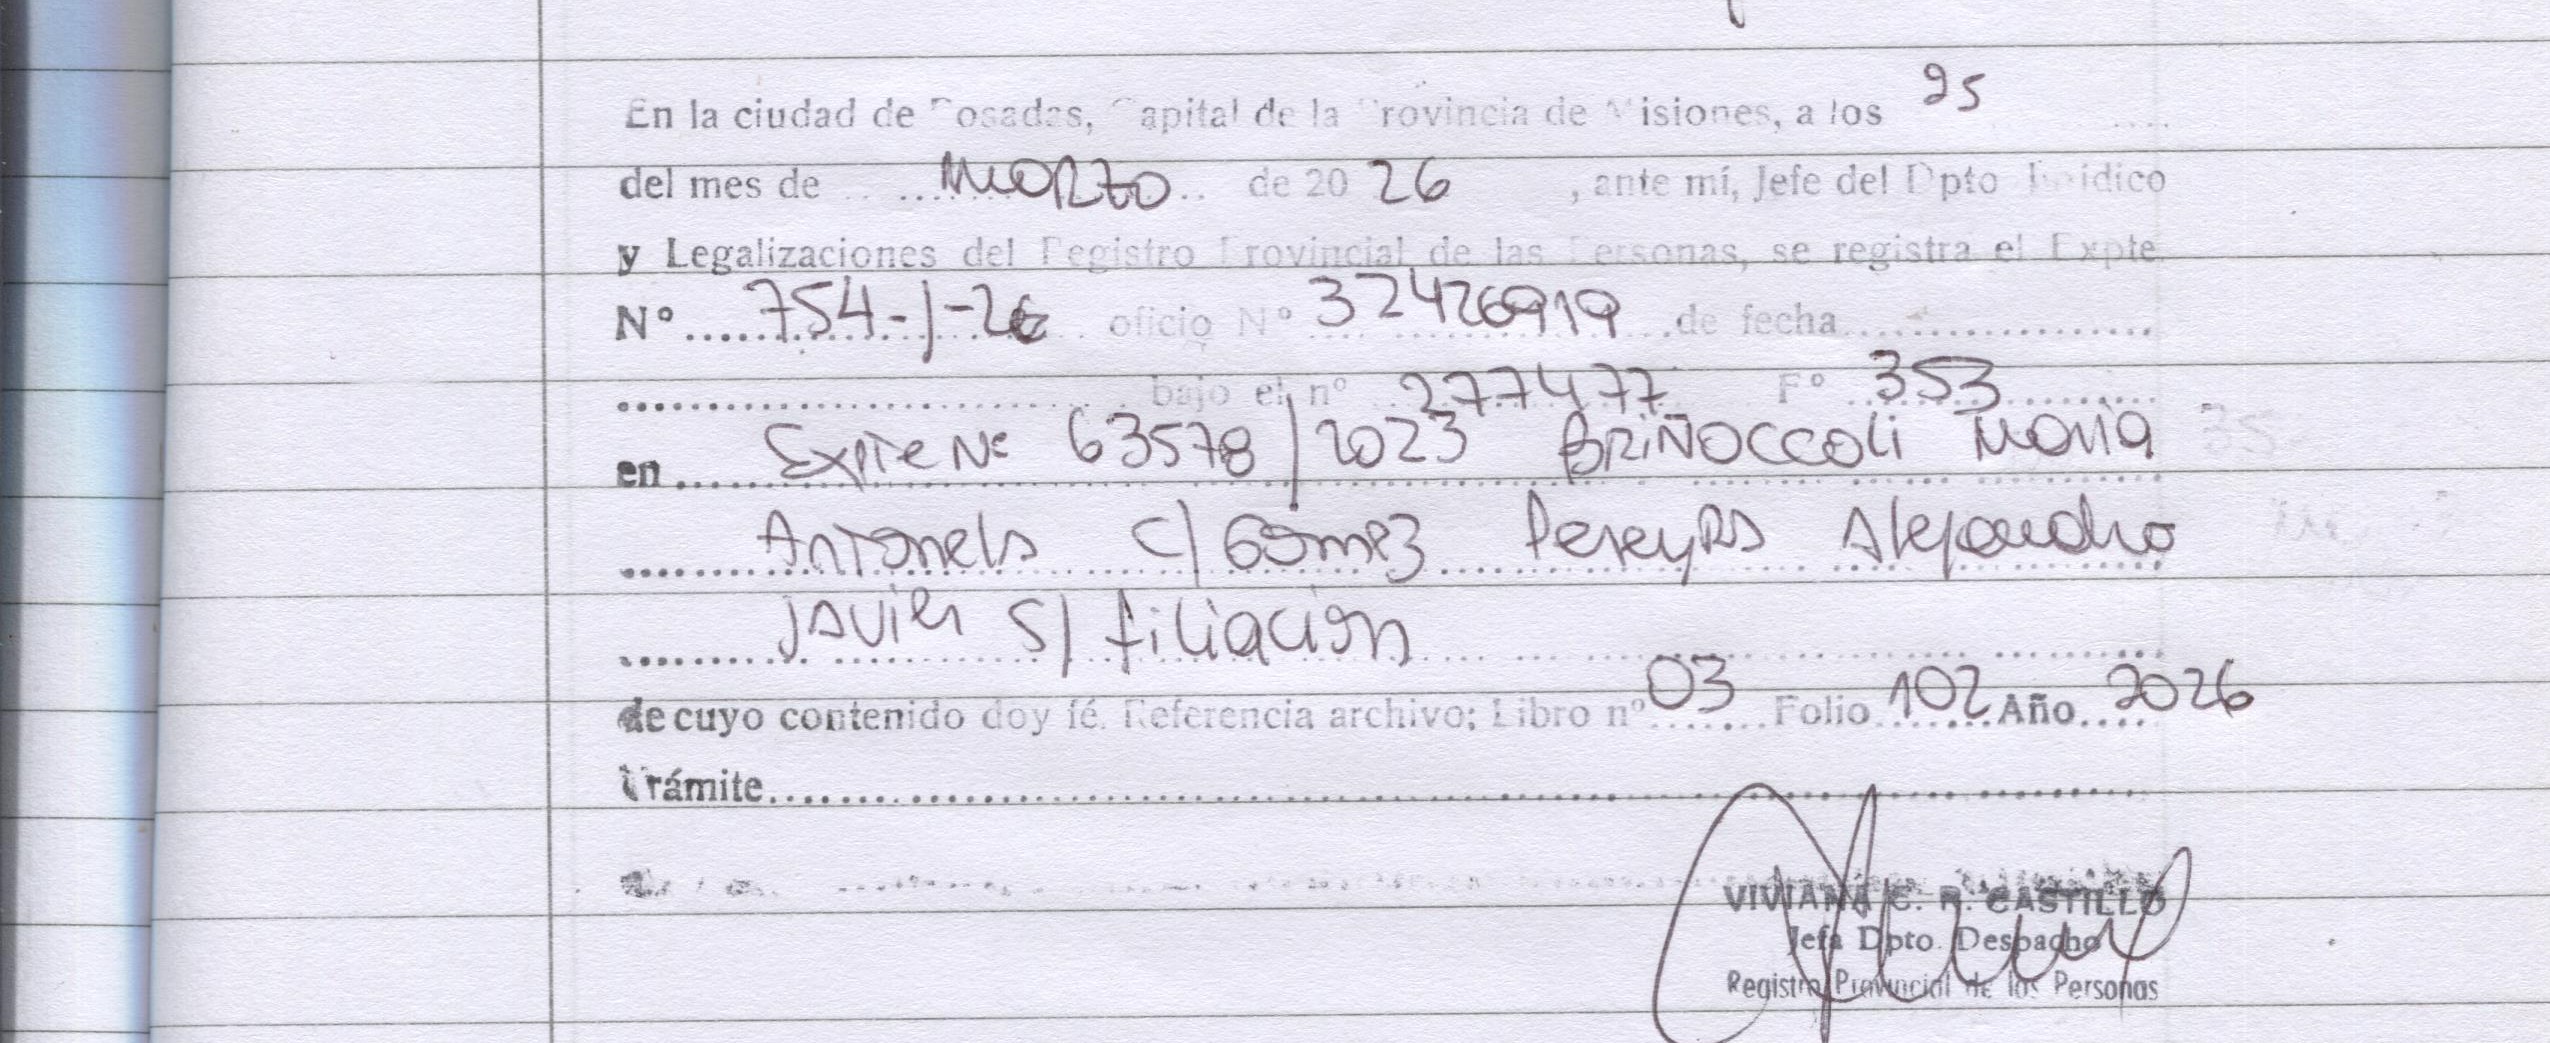 En la ciudad de Posadas, Capital de la Provincia de Misiones, a los 25
del mes de Marzo de 2026, ante mí, Jefe del Dpto Jurídico
y Legalizaciones del Registro Provincial de las Personas, se registra el Expte
Nº 754-J-26 oficio Nº 32426919 de fecha
bajo el nº 277477 Fº 353
en Expte Nº 63578/2023 BRIÑOCCOLI Maria
Antonela c/ Gómez Pereyra Alejandro
Javier S/ filiación
de cuyo contenido doy fé. Referencia archivo: Libro nº 03 Folio 102 Año 2026
Trámite
VIVIANA C. R. CASTILLO
Jefa Dpto. Despacho
Registro Provincial de las Personas